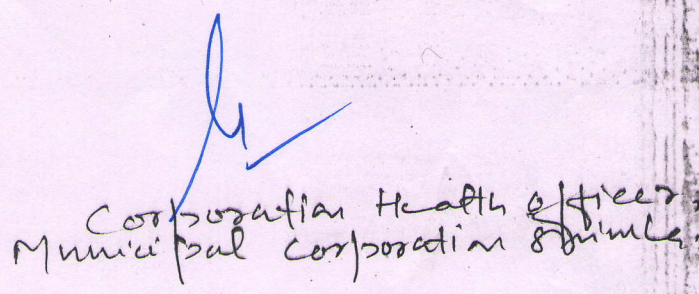 Corporation Health officer,
Municipal Corporation Shimla.